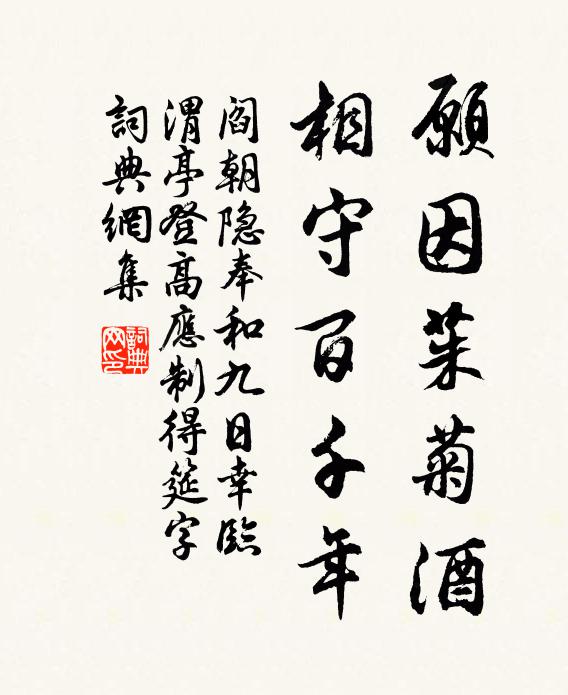 願因茱菊酒
相守百千年
閻朝隐奉和九日幸臨
渭亭登高應制得筵字
詞典網集
詞典
网印